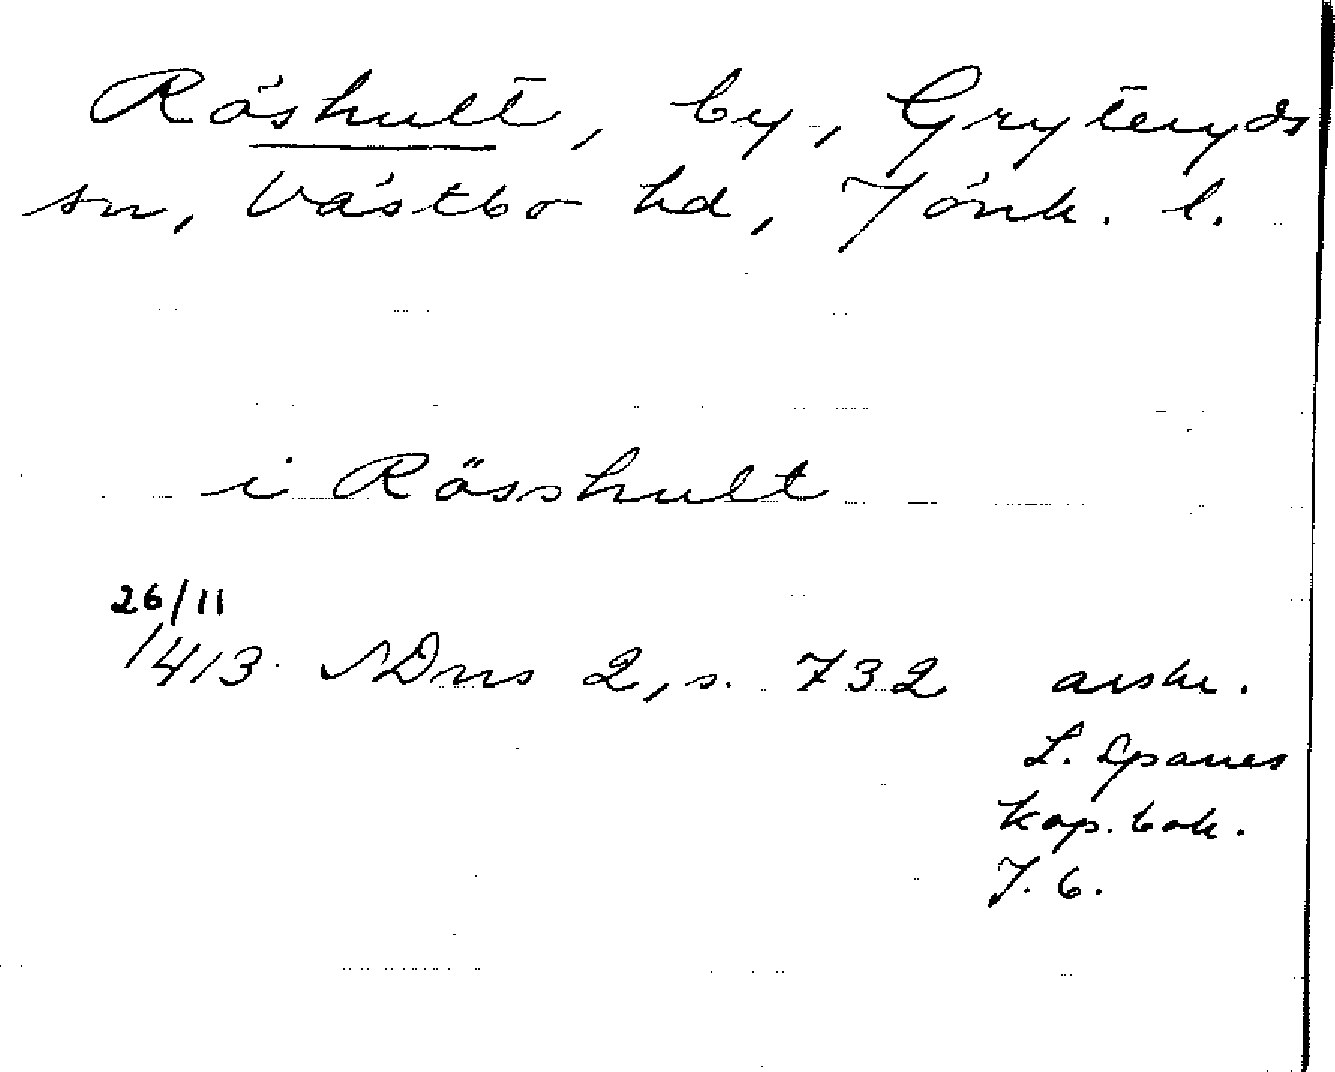 Röshult, by, Gryteryds
sn, Västbo hd, Jönk. l.
i Rösshult
26/11
1413 SDns 2, s. 732 avskr.
L. Sparres
kop. bok.
J. 6.